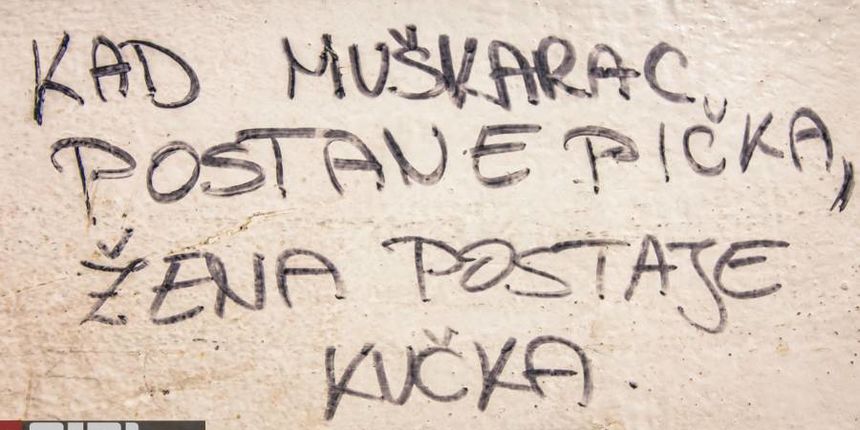 KAD MUŠKARAC
POSTANE PIČKA,
ŽENA POSTAJE
KUČKA.